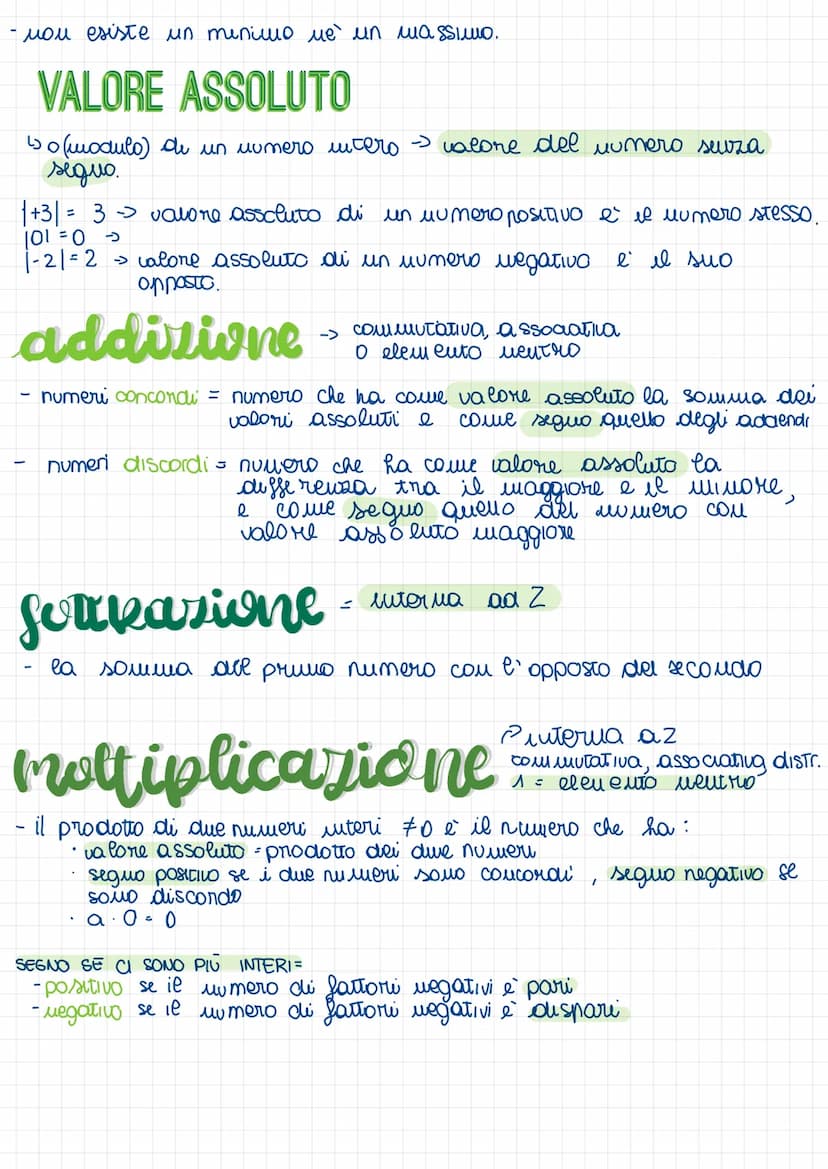 - non esiste un minimo nè un massimo.
VALORE ASSOLUTO
↳ o (modulo) di un numero intero → valore del numero senza
segno.
|+3| = 3 → valore assoluto di un numero positivo è il numero stesso.
|0| = 0 →
|-2| = 2 → valore assoluto di un numero negativo e' il suo
opposto.
addizione → commutativa, associativa
0 elemento neutro
- numeri concordi = numero che ha come valore assoluto la somma dei
valori assoluti e come segno quello degli addendi
- numeri discordi = numero che ha come valore assoluto la
differenza tra il maggiore e il minore,
e come segno quello del numero con
valore assoluto maggiore
sottrazione = interna ad Z
- la somma del primo numero con l'opposto del secondo
moltiplicazione → interna a Z
commutativa, associativa, distr.
1 = elemento neutro
- il prodotto di due numeri interi ≠0 è il numero che ha:
· valore assoluto = prodotto dei due numeri
· segno positivo se i due numeri sono concordi, segno negativo se
sono discordo
· a · 0 = 0
SEGNO SE CI SONO PIÙ INTERI =
- positivo se il numero di fattori negativi è pari
- negativo se il numero di fattori negativi è dispari